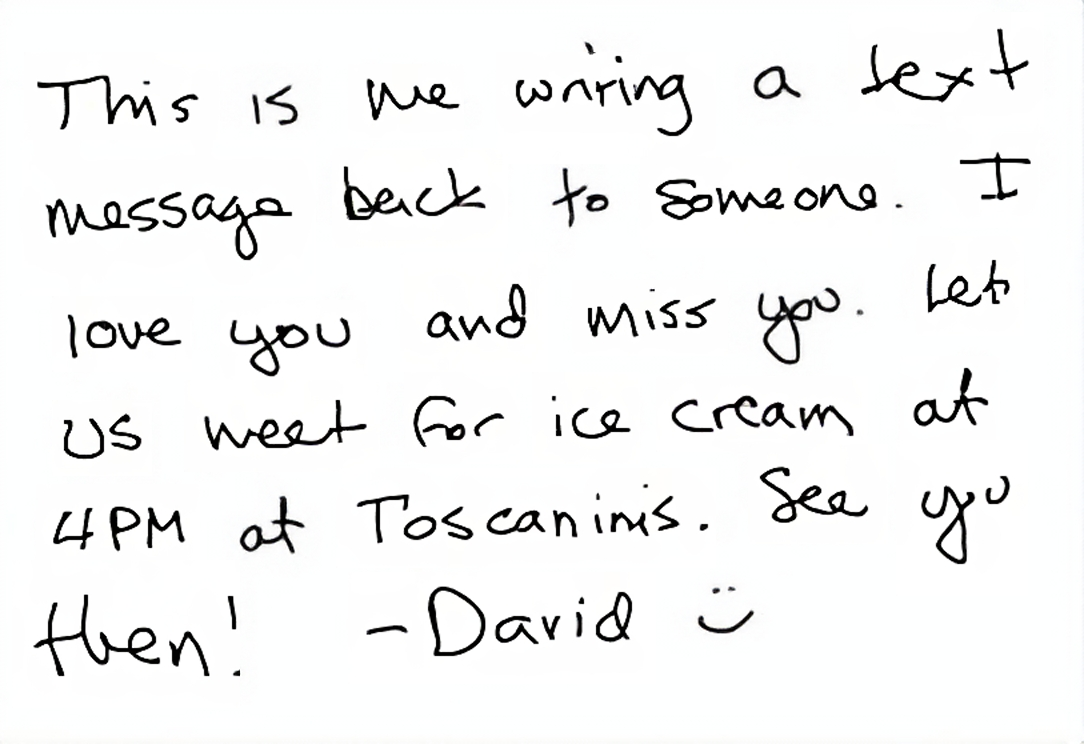 This is me writing a text
message back to someone. I
love you and miss you. Let
us meet for ice cream at
4PM at Toscaninis. See you
then! -David :)